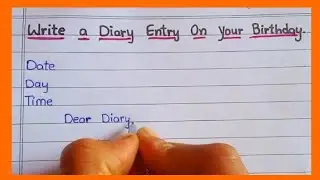 Write a Diary Entry On your Birthday.
Date
Day
Time
Dear Diary,